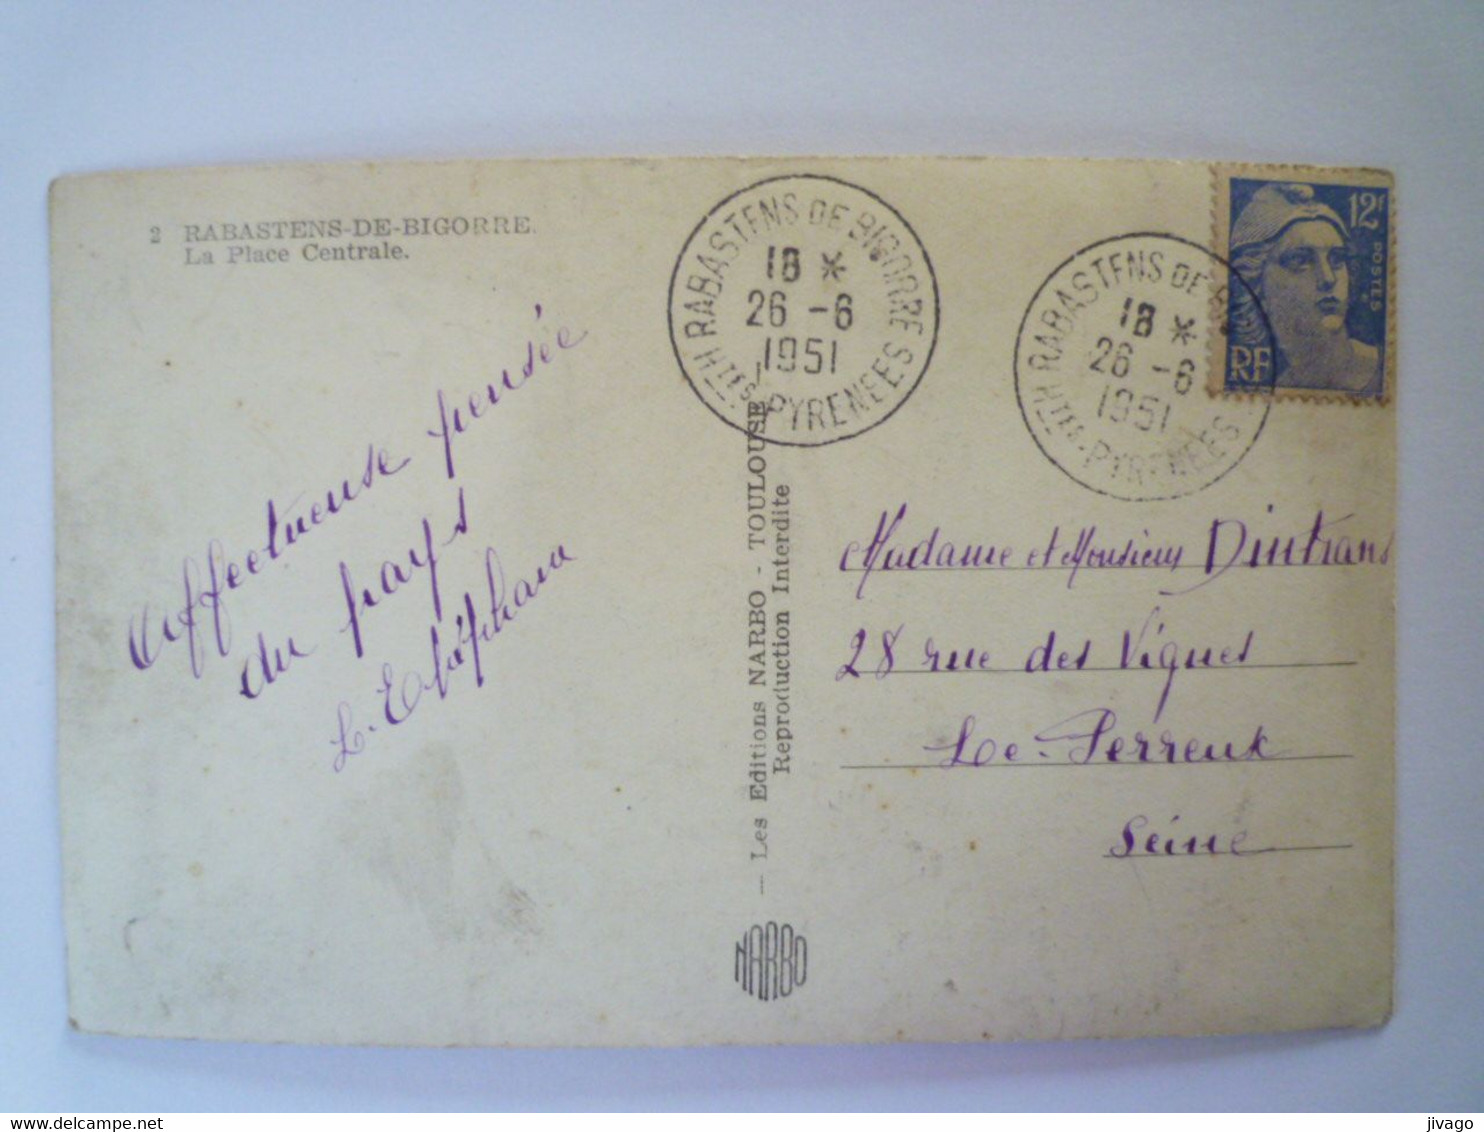 2 RABASTENS-DE-BIGORRE.
La Place Centrale.
Affectueuse pensée
du pays
RABASTENS DE BIGORRE
18 *
26 -6
1951
HTES-PYRENEES
RABASTENS DE BI
18 *
26 -6
1951
HTES-PYRENEES
12F
POSTES
RF
— Les Editions NARBO - TOULOUSE
Reproduction Interdite
NARBO
Madame et Monsieur Dintrans
28 rue des Vignes
Le-Perreux
Seine
delcampe.net
jivago